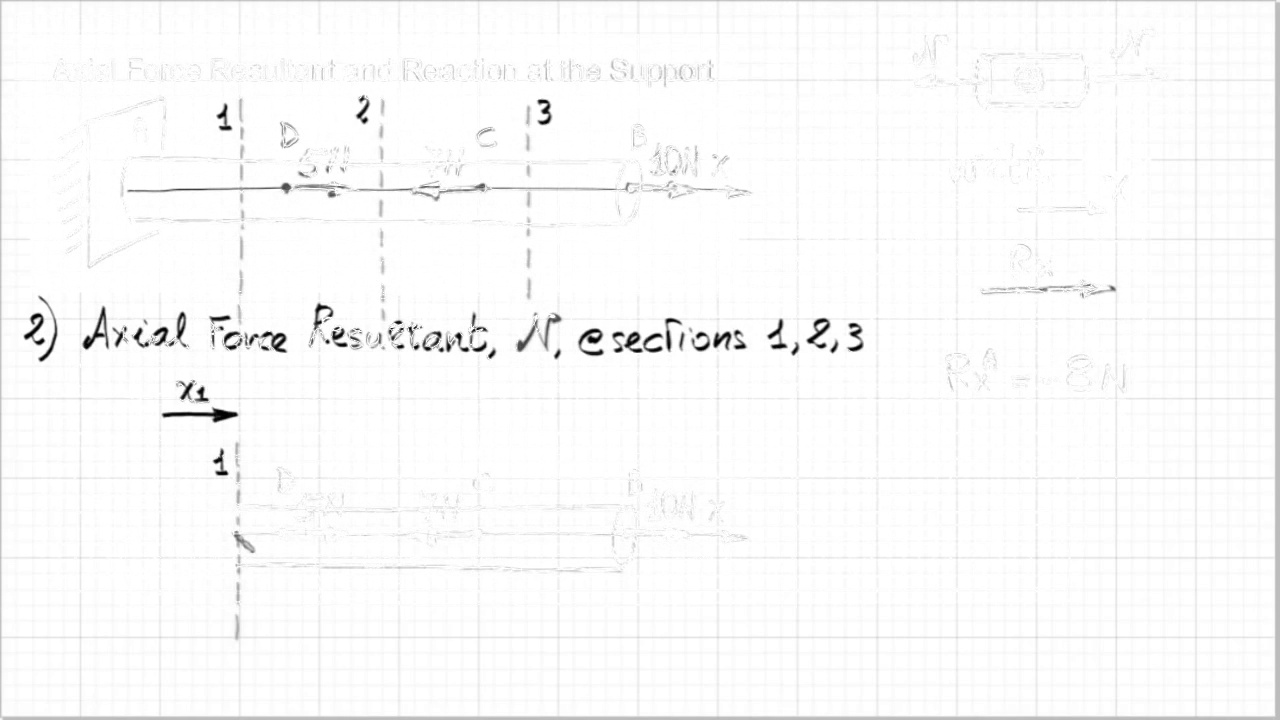 Axial Force Resultant and Reaction at the Support
N N
1 2 3
A D C B
5N 10N x
x
Rx
2) Axial Force Resultant, N, @ sections 1, 2, 3
RxA = -8N
x1
1
D C B
10N x